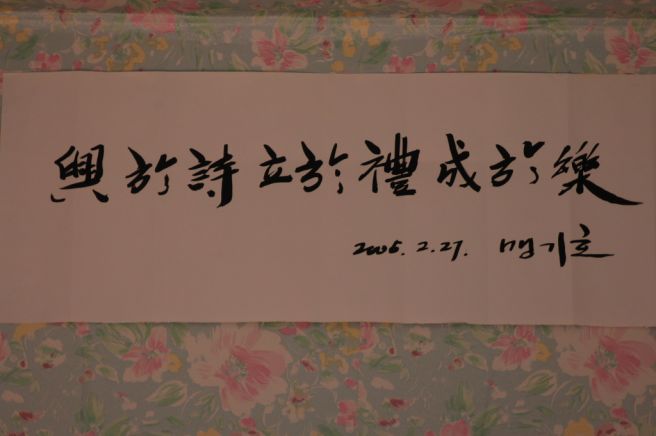 興於詩立於禮成於樂
2006. 2.27. 맹기호